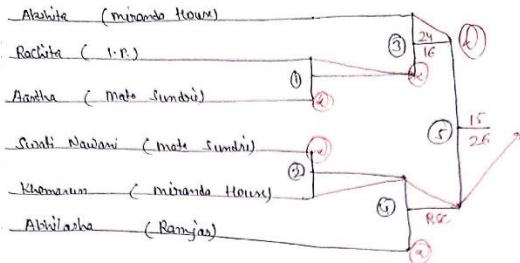 Akshita (miranda House)
Rachita ( I.P.)
Aastha ( mata Sundri)
Swati Nawani (mata Sundri)
( miranda House)
Abhilasha (Ramjas)
①
②
③
24
16
④
RSC
⑤
15
26